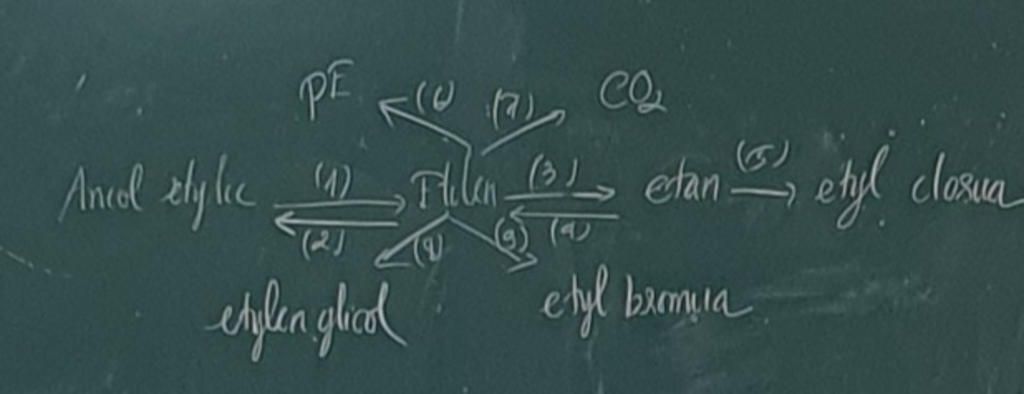 PE (6) (7) CO2
Ancol etylic (1) Etilen (3) etan (5) etyl clorua
(2) (8) (9) (4)
etylen glicol etyl bromua